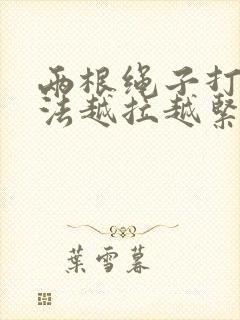 两根绳子打
法越拉越紧
葉雪暮